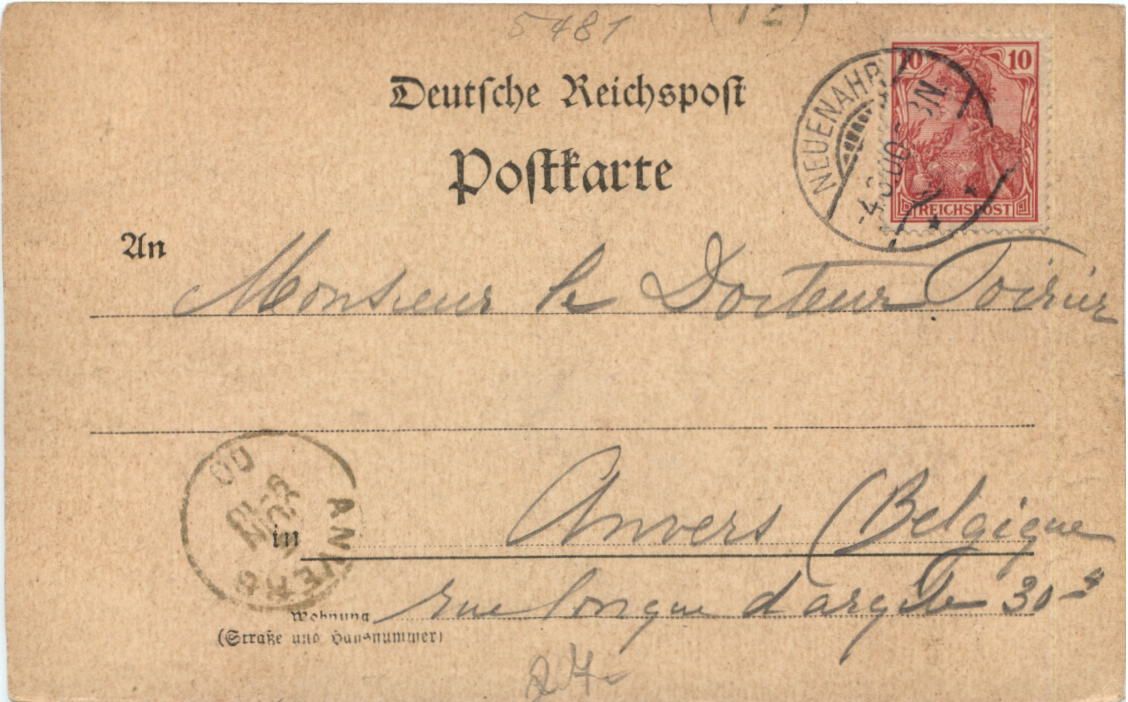 5481 (12)
Deutsche Reichspost
Postkarte
10 10
REICHSPOST
NEUENAHR
An
Monsieur le Docteur Poirier
ANVERS
00
in
Anvers (Belgique
Wohnung
(Straße und Hausnummer)
rue longue d'argile 30